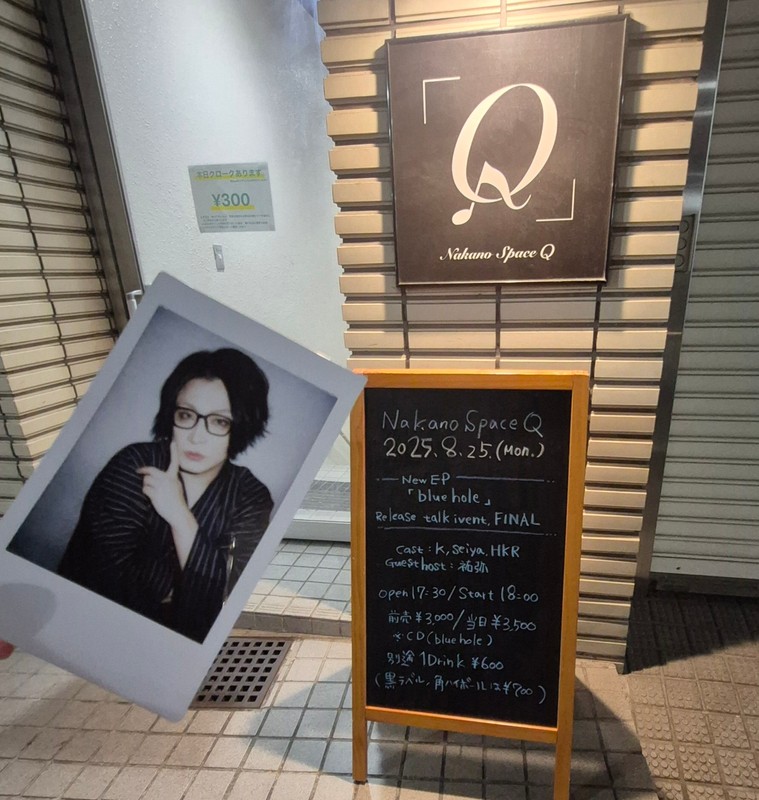 本日クロークあります。
¥300
Q
Nakano Space Q
Nakano Space Q
2025.8.25.(Mon.)
New EP
「blue hole」
Release talk ivent, FINAL
Cast : K, Seiya, HKR
Guest host : 祐弥
Open 17:30 / Start 18:00
前売 ¥3,000 / 当日 ¥3,500
CD (blue hole)
別途 1Drink ¥600
(黒ラベル、角ハイボールは¥700)